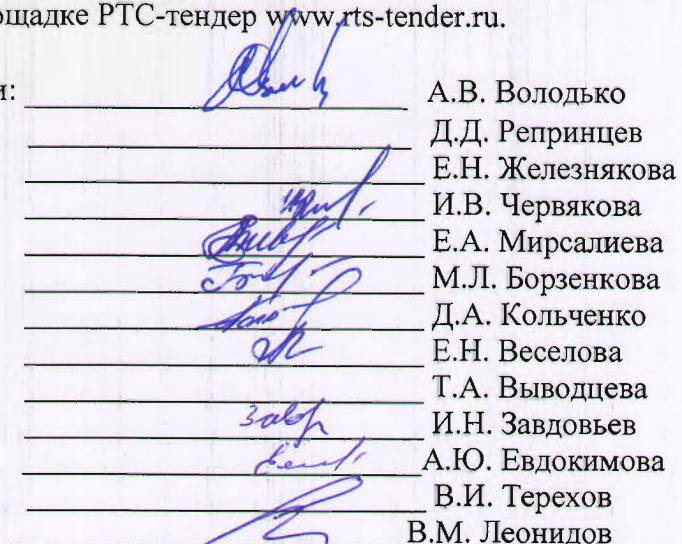 ощадке РТС-тендер www.rts-tender.ru.
и: А.В. Володько
Д.Д. Репринцев
Е.Н. Железнякова
И.В. Червякова
Е.А. Мирсалиева
М.Л. Борзенкова
Д.А. Кольченко
Е.Н. Веселова
Т.А. Выводцева
И.Н. Завдовьев
А.Ю. Евдокимова
В.И. Терехов
В.М. Леонидов